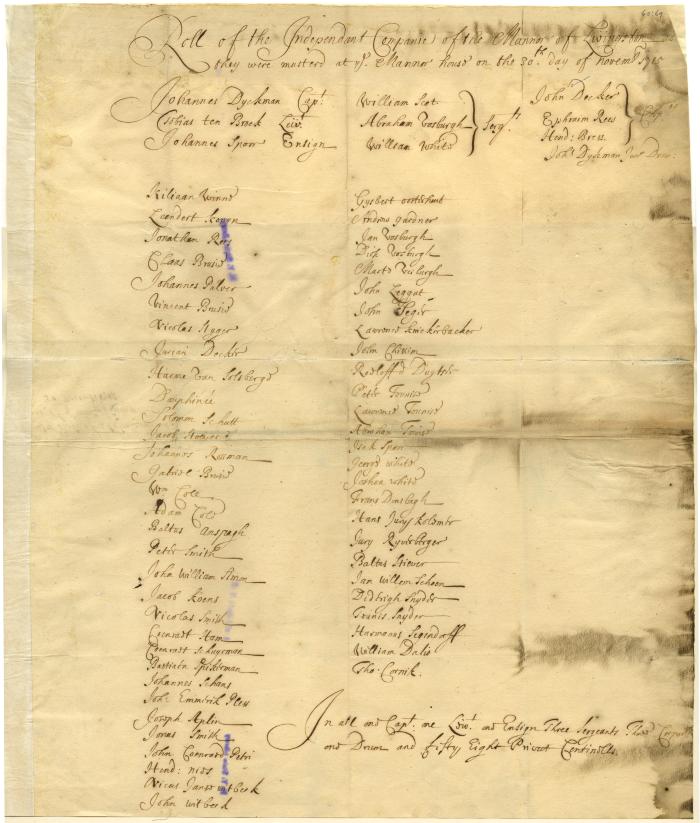 Roll of the Independant Companie of the Mannor of Livingston
they were musterd at ye. Mannor house on the 30th. day of novembr. 1715
Johannes Dyckman Capt:
Tobias ten Broeck Liwt.
Johannes Sporr Ensign
William Scot
Abraham Vosburgh
William White
Sergts.
John Decker
Ephraim Rees
Hend: Bress
Joht. Dyckman Junr Drum.
Kiliaan Winne
Leendert
Jonathan Rees
Claas Brusie
Johannes Palver
Vincent Brusie
Nicolas
Jurian Decker
Harme Van Salsbergh
Dauphinee
Solomon Schutt
Jacob
Johannes Rosman
Gabriel Brusie
Wm Cole
Adam Cole
Baltus Anspagh
Peter Smith
John William Simon
Jacob Koens
Nicolas Smith
Coenradt Ham
Coenradt Schuyrman
Bastiaen Spikerman
Johannes Schans
Joh: Emmirik Plees
Joseph Aplin
Jonas Smith
John Coenradt Petri
Hend: nies
Nicus Janse witbeck
John witbeck
Gysbert oosterhout
Andrew gardner
Jan Vosburgh
Dirk Vosburgh
Marte Vosburgh
John Leggat
John
Lawrence knickerbacker
John Chissim
Roeloff D Duytser
Peter Tounise
Lawrence Tounise
Abraham Tounise
Isak Sporr
George white
Joshua white
Frans
Hans Jury
Jury Ryvirberger
Baltus Stiever
Jan Willem Schoon
Didrigh Snyder
Frans Snyder
Harmanus Segendorff
William Dalis
Tho: Cornik.
In all one Capt. one Liwt. one Ensign Three Sergeants Three
one Drum and fifty Eight Privet Centinells.